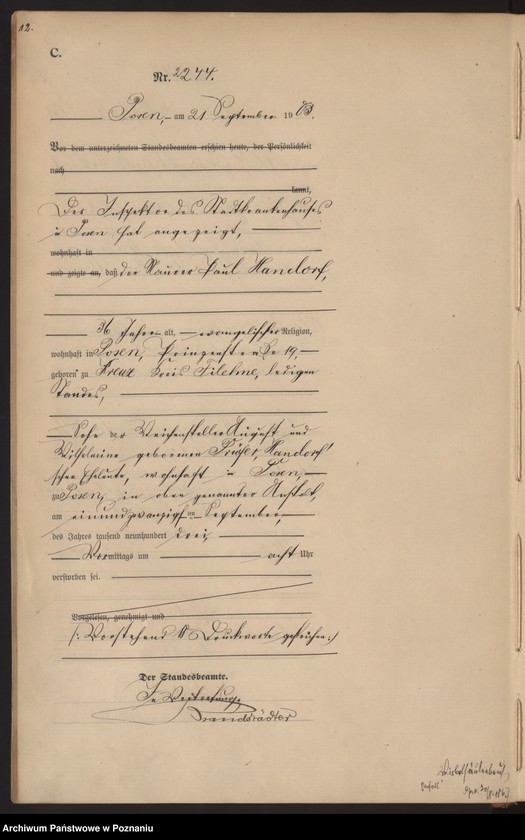 12.
C.
Nr. 2244.
Posen, am 21 September 1903.
Vor dem unterzeichneten Standesbeamten erschien heute, der Persönlichkeit
nach
kannt,
Der Inspektor des Stadtkrankenhauses
in Posen hat angezeigt,
wohnhaft in
und zeigte an, daß der Maurer Paul Handorf,
36 Jahre alt, evangelischer Religion,
wohnhaft in Posen, Prinzenstraße 19,
geboren zu Kreuz Kreis Filehne, ledigen
Standes,
Sohn der Weichensteller August und
Wilhelmine geborenen Prüfer, Handorf'
schen Eheleute, wohnhaft in Posen,
zu Posen, in oben genannter Anstalt,
am einundzwanzigsten September,
des Jahres tausend neunhundert drei
Vormittags um acht Uhr
verstorben sei.
Vorgelesen, genehmigt und
/: Vorstehend Druckworte gestrichen :/
Der Standesbeamte.
In Vertretung.
Brandstädter
Archiwum Państwowe w Poznaniu